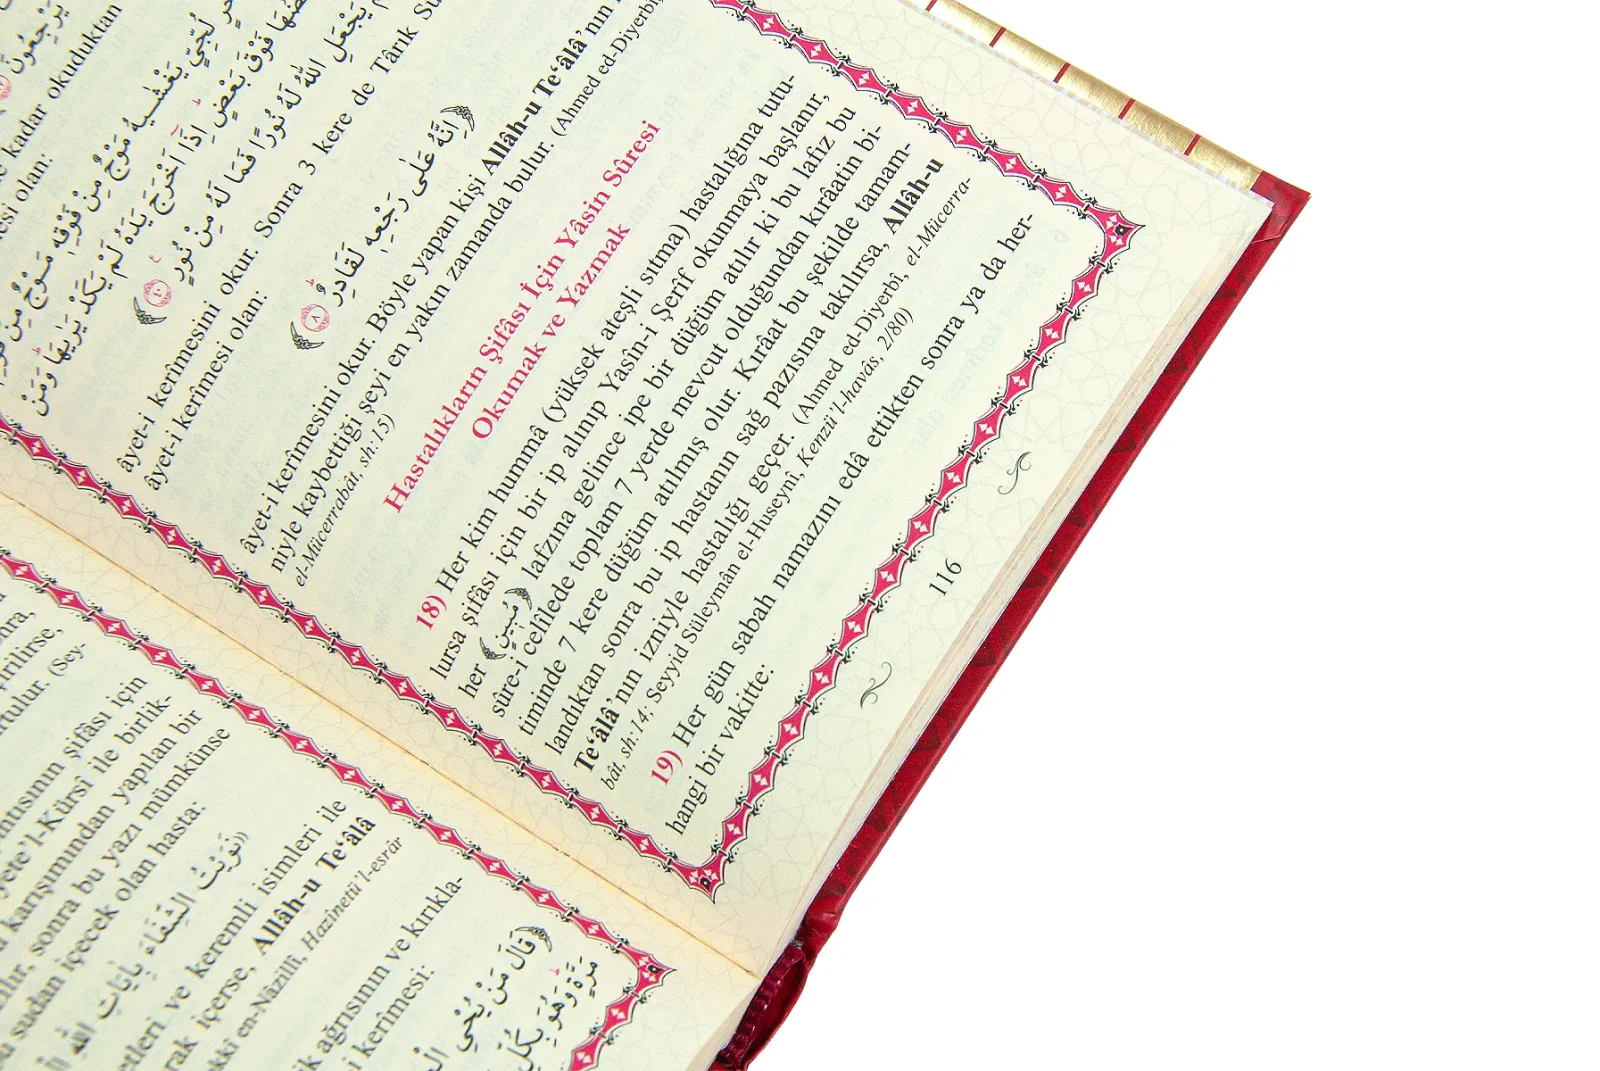 kadar okuduktan
esi olan:
يَغْشٰيهُ مَوْجٌ مِنْ فَوْقِه۪ مَوْجٌ مِنْ
فَوْقَ بَعْضٍ اِذَٓا اَخْرَجَ يَدَهُ لَمْ يَكَدْ يَرٰيهَا وَمَنْ
يَجْعَلِ اللّٰهُ لَهُ نُورًا فَمَا لَهُ مِنْ نُورٍ ﴿٤٠﴾
âyet-i kerîmesini okur. Sonra 3 kere de Târık
âyet-i kerîmesi olan:
﴿اِنَّهُ عَلٰى رَجْعِه۪ لَقَادِرٌ ﴿٨﴾
âyet-i kerîmesini okur. Böyle yapan kişi Allâh-u Te‘âlâ’nın
niyle kaybettiği şeyi en yakın zamanda bulur. (Ahmed ed-Diyerbî,
el-Mücerrabât, sh:15)
Hastalıkların Şifâsı İçin Yâsin Sûresi
Okumak ve Yazmak
18) Her kim hummâ (yüksek ateşli sıtma) hastalığına tutu-
lursa şifâsı için bir ip alınıp Yasîn-i Şerîf okunmaya başlanır,
her ﴿مُب۪ينٌ﴾ lafzına gelince ipe bir düğüm atılır ki bu lafız bu
sûre-i celîlede toplam 7 yerde mevcut olduğundan kırâatin bi-
timinde 7 kere düğüm atılmış olur. Kırâat bu şekilde tamam-
landıktan sonra bu ip hastanın sağ pazısına takılırsa, Allâh-u
Te‘âlâ’nın izniyle hastalığı geçer. (Ahmed ed-Diyerbî, el-Mücerra-
bât, sh:14; Seyyid Süleymân el-Huseynî, Kenzü’l-havâs, 2/80)
19) Her gün sabah namazını edâ ettikten sonra ya da her-
hangi bir vakitte:
116
(Sey-
şifâsı için
yete’l-Kürsî ile birlik-
karışımından yapılan bir
sonra bu yazı mümkünse
sudan içecek olan hasta:
نَوَيْتُ الشِّفَاءَ بِاٰيَاتِ اللّٰهِ
ve keremli isimleri ile
içerse, Allâh-u Te‘âlâ
en-Nâzillî, Hazînetü’l-esrâr
ağrısının ve kırıkla-
kerîmesi:
﴿قَالَ مَنْ يُحْيِ
مَرَّةٍ وَهُوَ بِكُلِّ